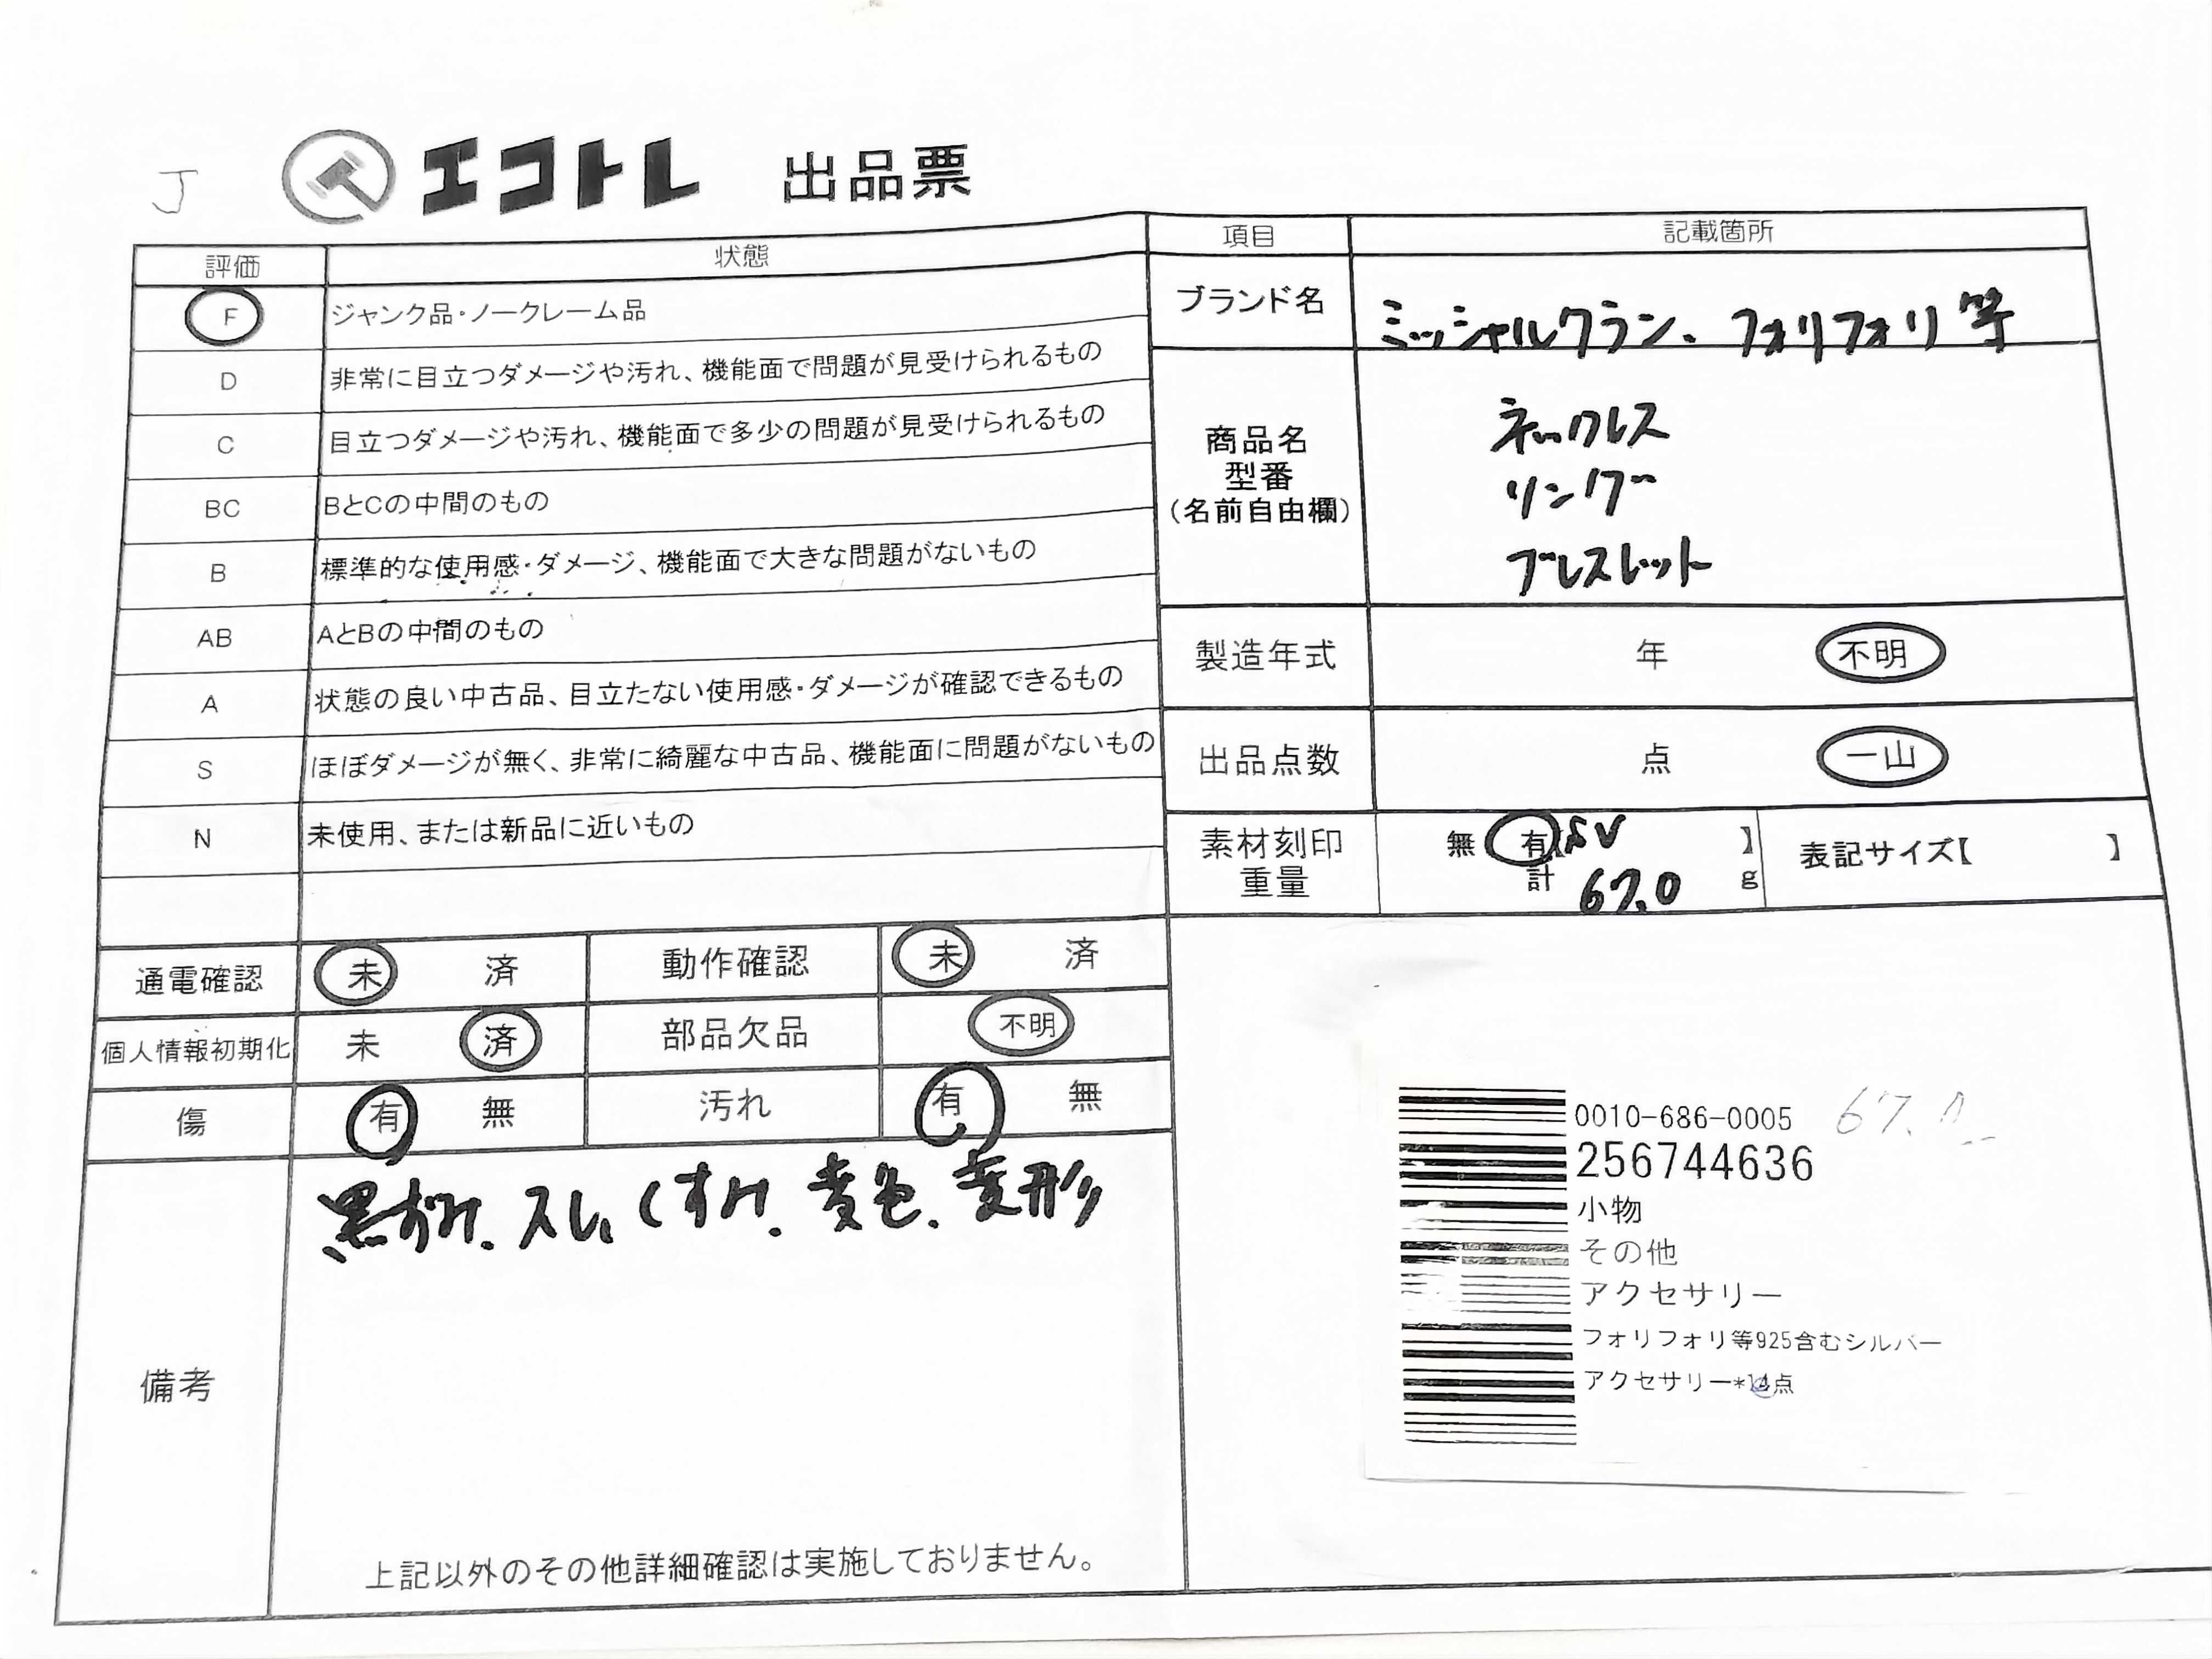 J
エコトレ 出品票
評価 状態
F ジャンク品・ノークレーム品
D 非常に目立つダメージや汚れ、機能面で問題が見受けられるもの
C 目立つダメージや汚れ、機能面で多少の問題が見受けられるもの
BC BとCの中間のもの
B 標準的な使用感・ダメージ、機能面で大きな問題がないもの
AB AとBの中間のもの
A 状態の良い中古品、目立たない使用感・ダメージが確認できるもの
S ほぼダメージが無く、非常に綺麗な中古品、機能面に問題がないもの
N 未使用、または新品に近いもの
通電確認 未 済 動作確認 未 済
個人情報初期化 未 済 部品欠品 不明
傷 有 無 汚れ 有 無
備考
黒ずみ、スレ、くすみ、変色、変形
上記以外のその他詳細確認は実施しておりません。
項目 記載箇所
ブランド名 ミッシャルクラン、フォリフォリ等
商品名
型番
(名前自由欄)
ネックレス
リング
ブレスレット
製造年式 年 不明
出品点数 点 一山
素材刻印 無 有【SV 】 表記サイズ【 】
重量 計 67.0 g
0010-686-0005
256744636
小物
その他
アクセサリー
フォリフォリ等925含むシルバー
アクセサリー*点
67.